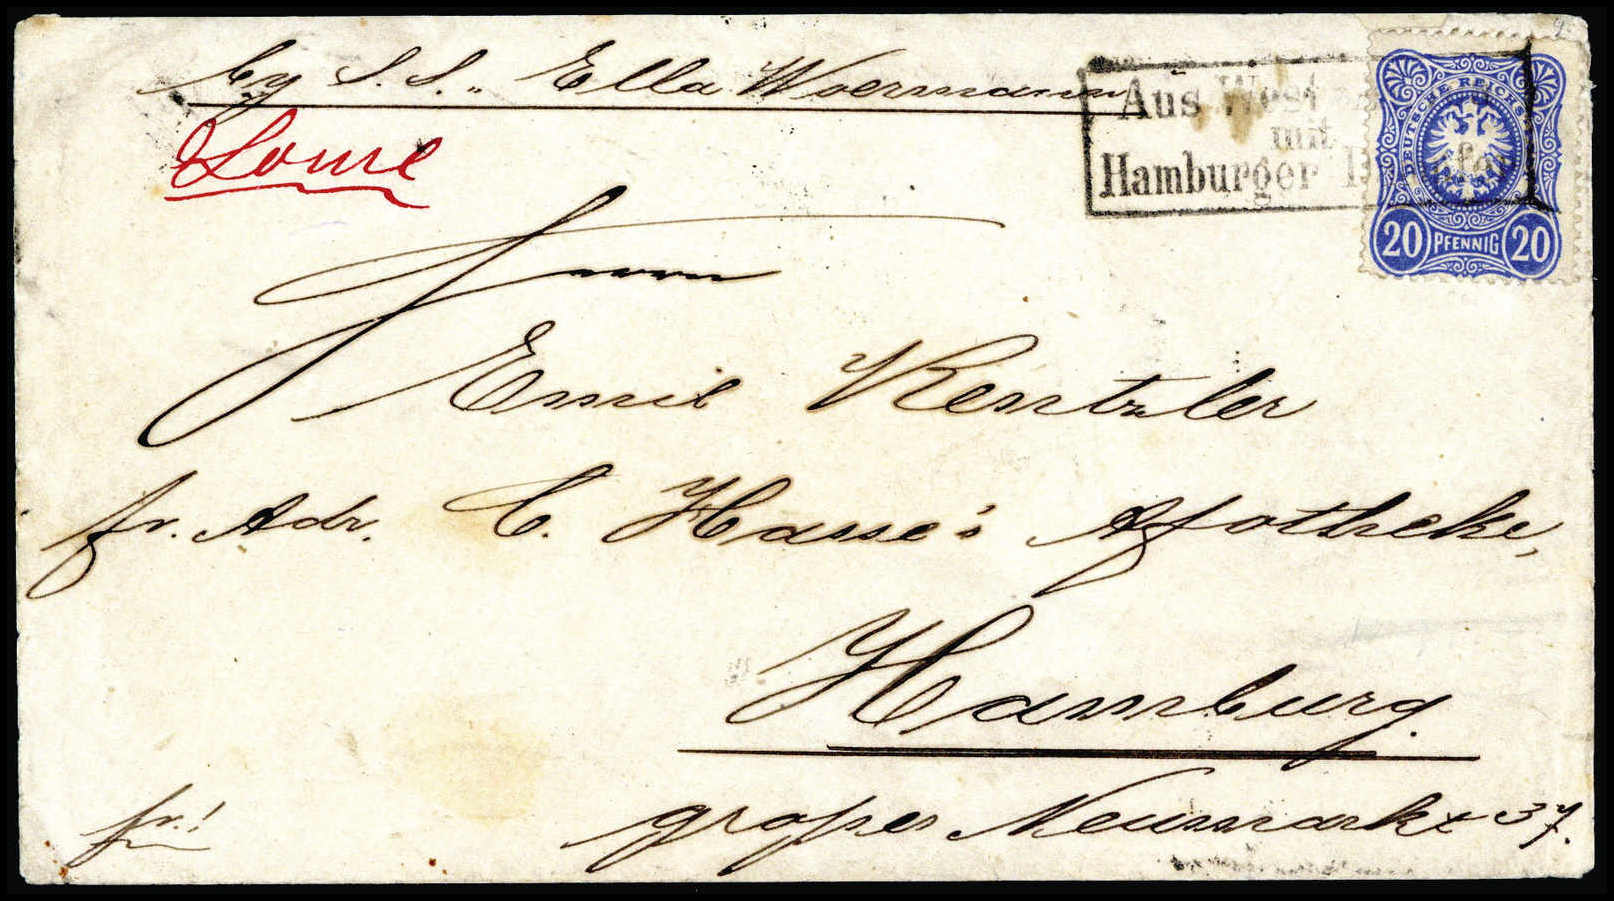 by S.S. „ Ella Woermann
Lome
Aus West
mit
Hamburger
DEUTSCHE REICHS
20 PFENNIG 20
Herrn
Emil Kentzler
fr. Adr. C. Hasse's Apotheke,
Hamburg.
fr.!
großer Neumarkt 37.